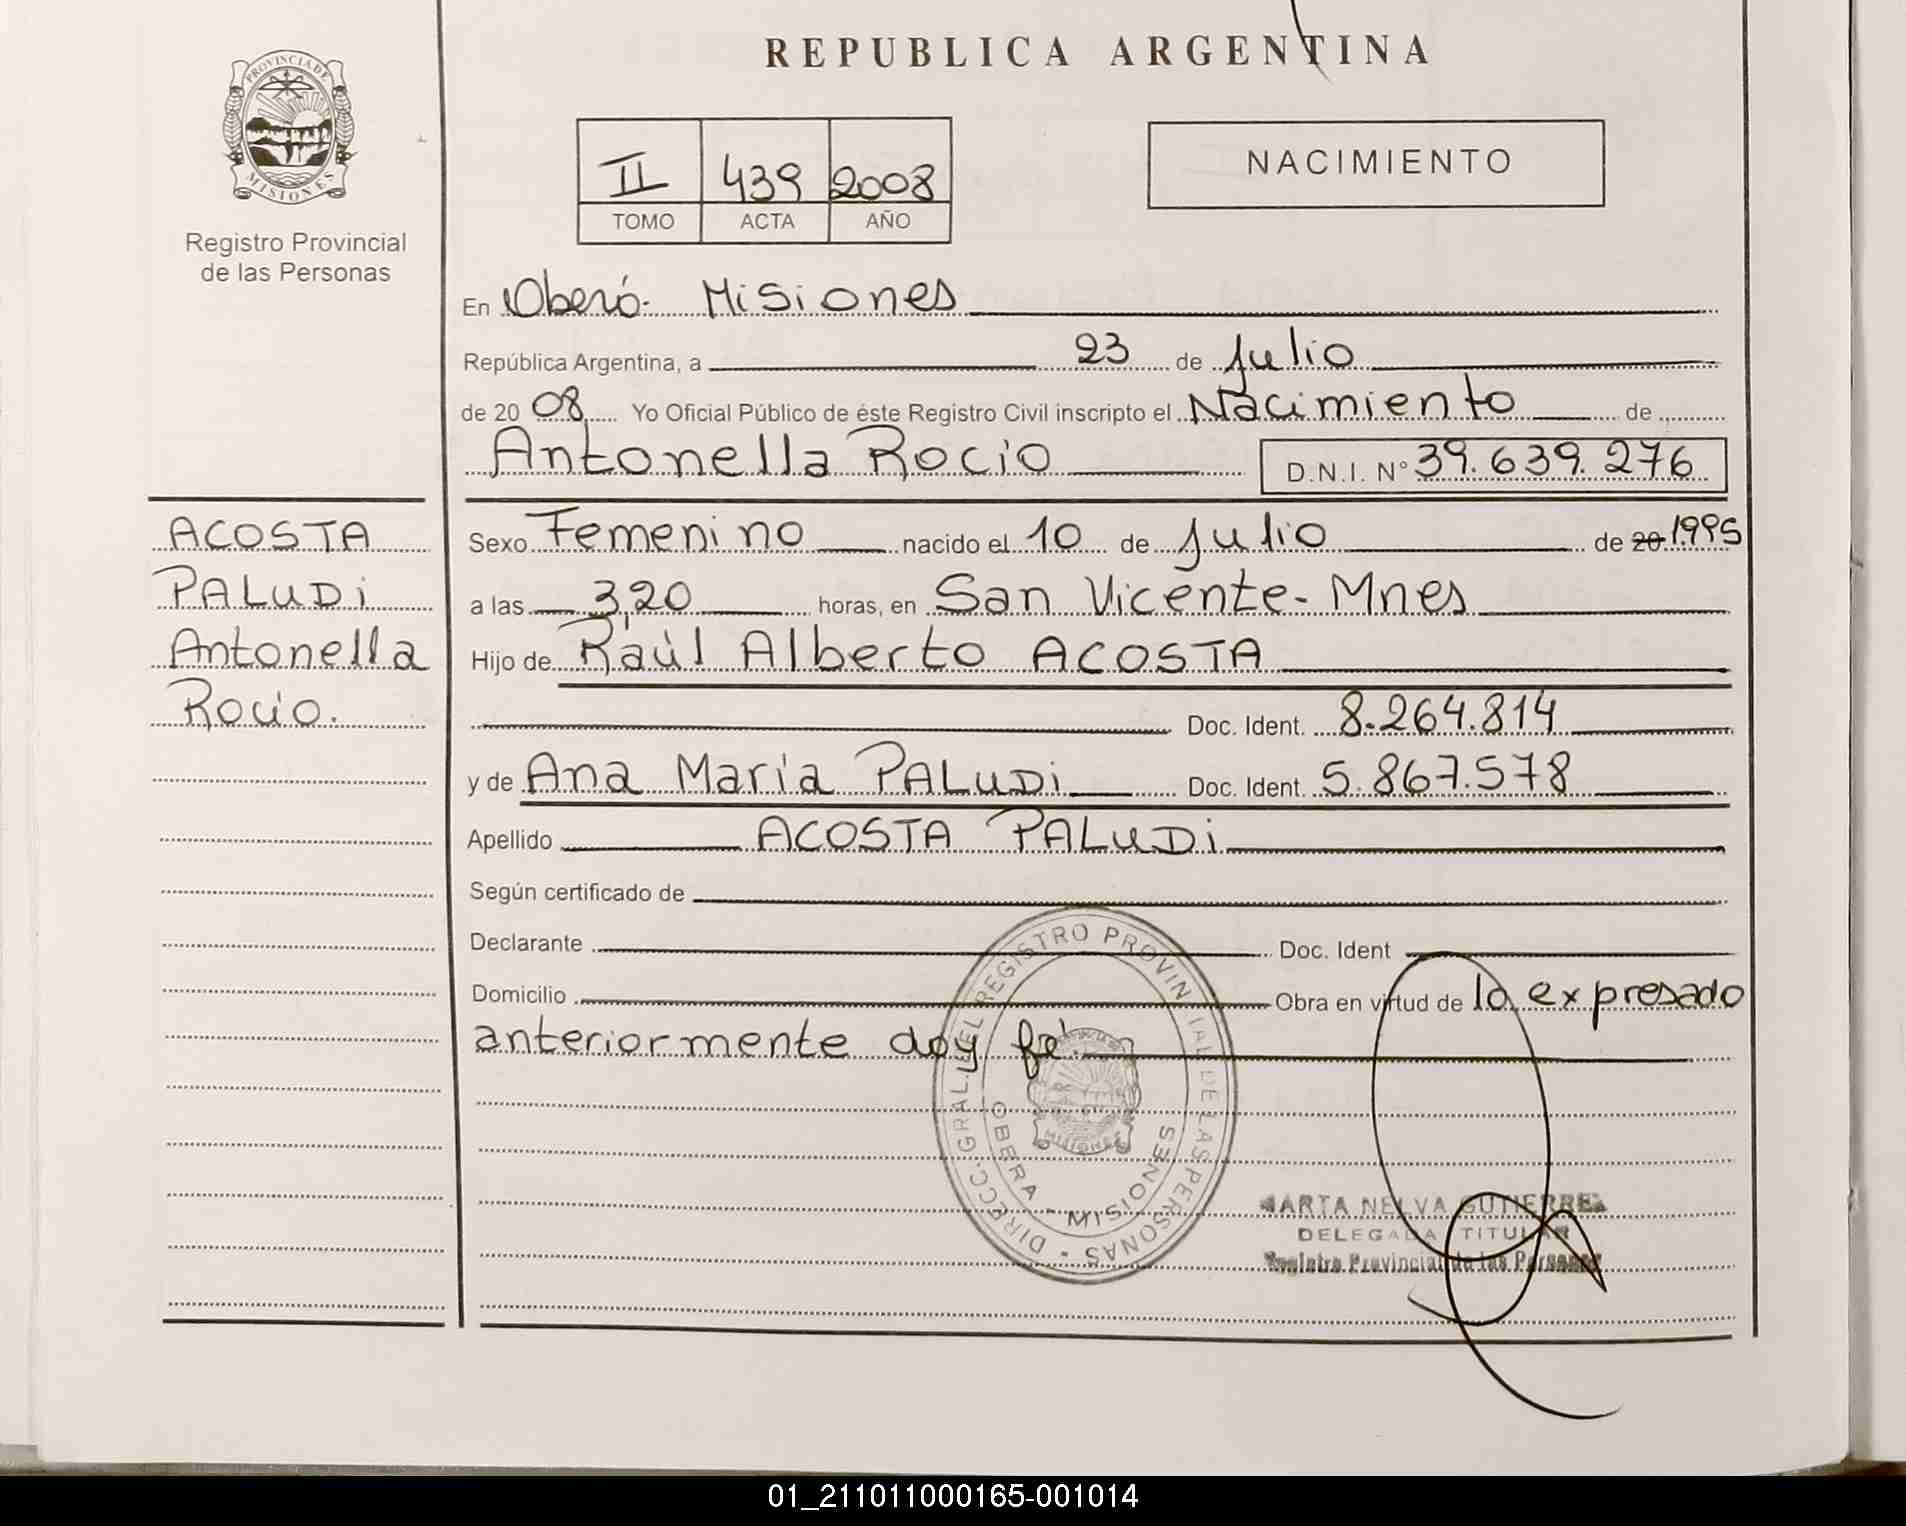 REPUBLICA ARGENTINA
PROVINCIA DE
MISIONES
Registro Provincial
de las Personas
II 439 2008
TOMO ACTA AÑO
NACIMIENTO
En Oberá. Misiones
República Argentina, a 23 de Julio
de 20 08 Yo Oficial Público de éste Registro Civil inscripto el Nacimiento de
Antonella Rocio D.N.I. Nº 39.639.276
ACOSTA
PALUDi
Antonella
Rocio.
Sexo Femenino nacido el 10 de Julio de 20 1995
a las 3,20 horas, en San Vicente- Mnes
Hijo de Raúl Alberto ACOSTA
Doc. Ident. 8.264.814
y de Ana María PALUDi Doc. Ident. 5.867.578
Apellido ACOSTA PALUDi
Según certificado de
Declarante Doc. Ident
Domicilio Obra en virtud de lo expresado
anteriormente doy fé.
DIRECC. GRAL. DEL REGISTRO PROVINCIAL DE LAS PERSONAS
OBERA - MISIONES
MISIONES
MARTA NELVA GUTIERREZ
DELEGADA TITULAR
Registro Provincial de las Personas
01_211011000165-001014